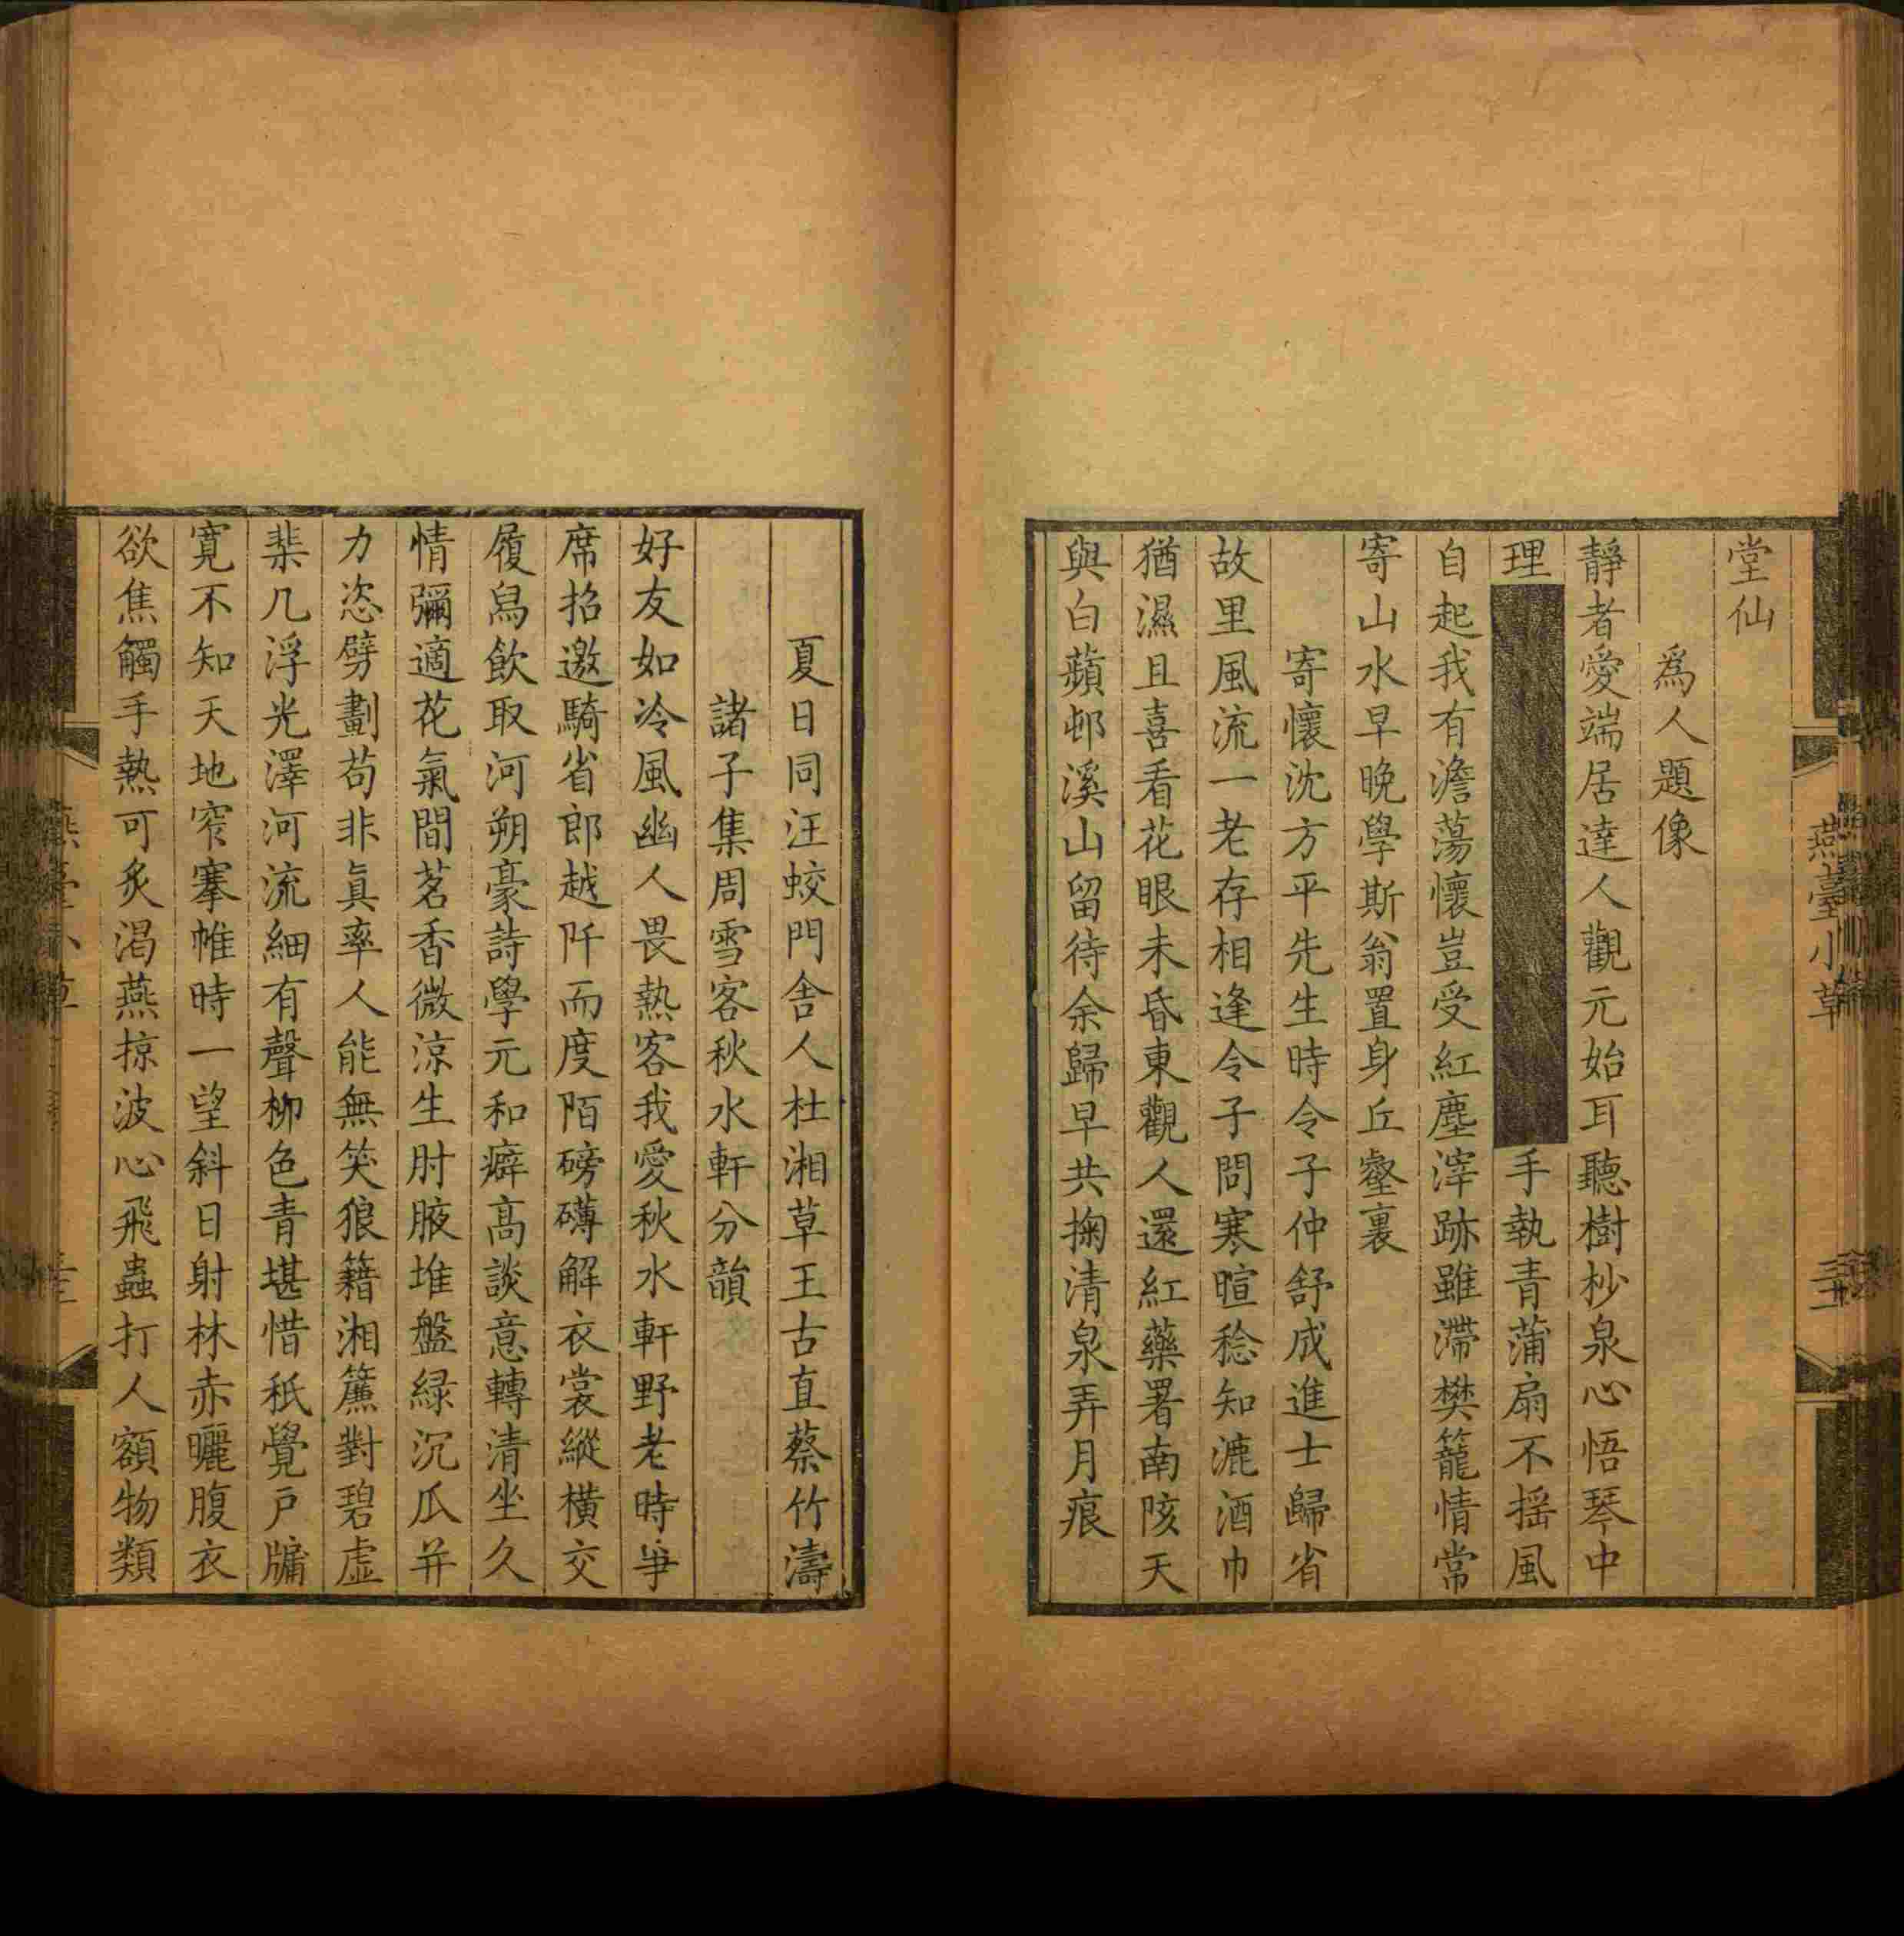 燕臺小草
堂仙
爲人題像
靜者愛端居達人觀元始耳聽樹杪泉心悟琴中
理
手執青蒲扇不摇風
自起我有澹蕩懷豈受紅塵滓跡雖滯樊籠情常
寄山水早晚學斯翁置身丘壑裏
寄懷沈方平先生時令子仲舒成進士歸省
故里風流一老存相逢令子問寒暄稔知漉酒巾
猶濕且喜看花眼未昏東觀人還紅藥署南陔天
與白蘋邨溪山留待余歸早共掬清泉弄月痕
夏日同汪蛟門舍人杜湘草王古直蔡竹濤
諸子集周雪客秋水軒分韻
好友如冷風幽人畏熱客我愛秋水軒野老時爭
席招邀騎省郎越阡而度陌磅礴解衣裳縱橫交
履舄飲取河朔豪詩學元和癖高談意轉清坐久
情彌適花氣間茗香微涼生肘腋堆盤綠沉瓜并
力恣劈劃苟非眞率人能無笑狼籍湘簾對碧虛
棐几浮光澤河流細有聲柳色青堪惜秖覺戸牖
寬不知天地窄搴帷時一望斜日射林赤曬腹衣
欲焦觸手熱可炙渴燕掠波心飛蟲打人額物類